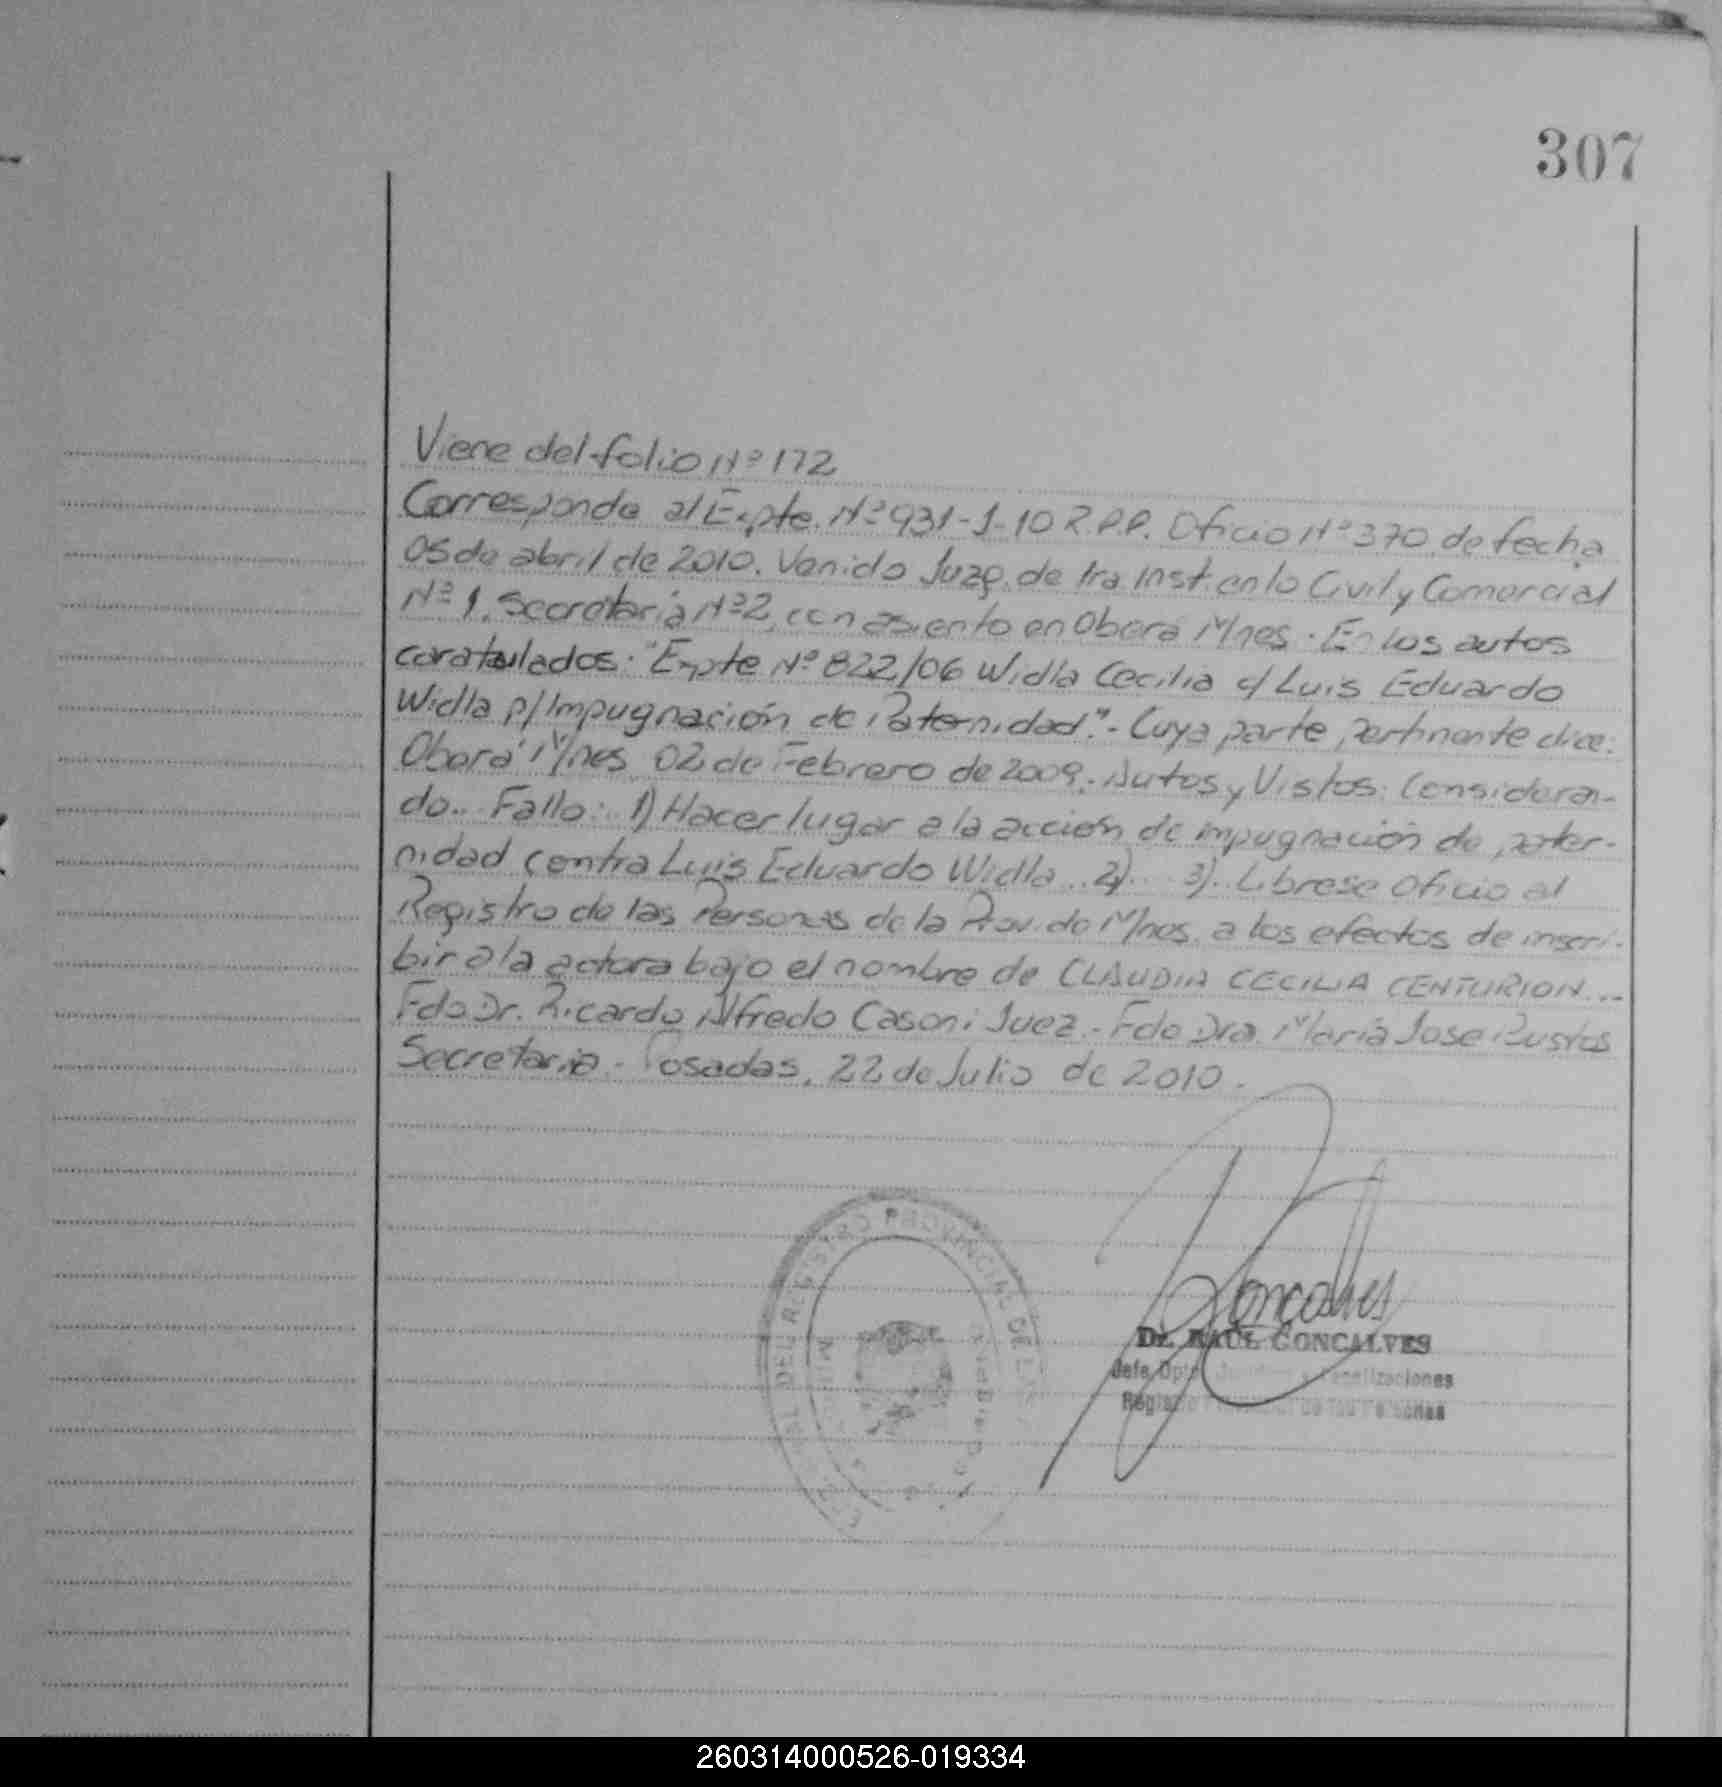 307
Viene del folio Nº 172
Corresponde al Expte. Nº 931-1-10 R.P.P. Oficio Nº 370 de fecha
05 de abril de 2010. Venido Juzg. de 1ra Inst. en lo Civil y Comercial
Nº 1. Secretaria Nº 2, con asiento en Oberá M/nes. En los autos
caratulados: "Expte Nº 822/06 Widla Cecilia c/ Luis Eduardo
Widla p/ Impugnación de Paternidad".- Cuya parte pertinente dice:
Oberá M/nes 02 de Febrero de 2009. Autos y Vistos: Consideran-
do.. Fallo: 1) Hacer lugar a la acción de impugnación de pater-
nidad contra Luis Eduardo Widla.. 2).. 3).. Librese oficio al
Registro de las Personas de la Prov. de M/nes. a los efectos de inscri-
bir a la actora bajo el nombre de CLAUDIA CECILIA CENTURION...
Fdo Dr. Ricardo Alfredo Casoni Juez.- Fdo Dra. Maria Jose Bustos
Secretaria.- Posadas, 22 de Julio de 2010.
DEL REGISTRO PROVINCIAL DE
Goncalves
Dr. RAUL GONCALVES
Jefe Dpto.
Registro Provincial de las Personas
260314000526-019334